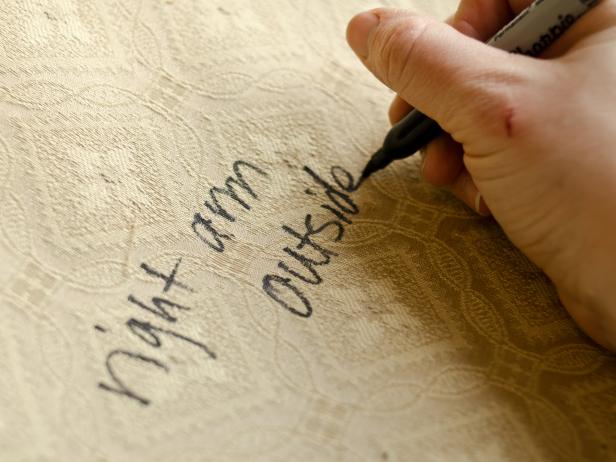 right arm
outside
Sharpie